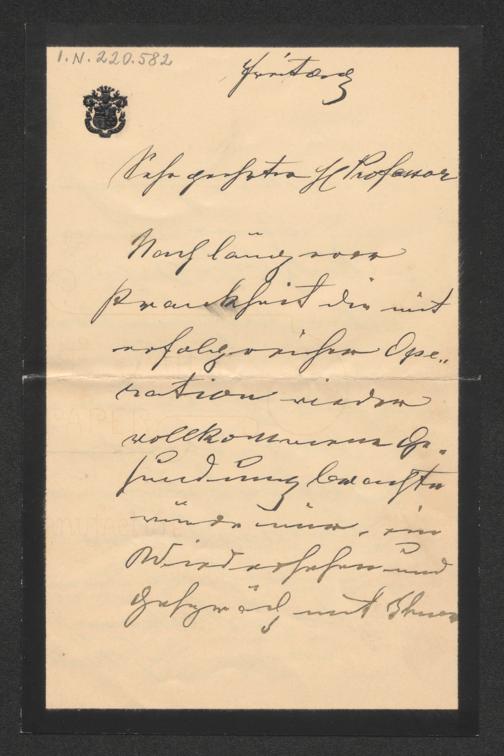 I.N. 220.582
Freitag
Sehr geehrter H Professor
Nach längerer
Krankheit die mit
erfolgreicher Ope„
ration wieder
vollkommene Ge„
sundung brachte
würde mir, ein
Wiedersehen und
Gespräch mit Ihnen